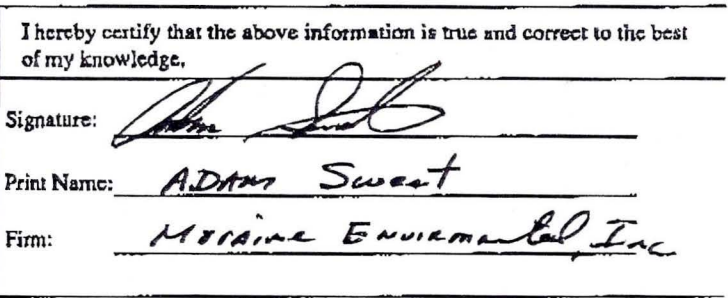 I hereby certify that the above information is true and correct to the best
of my knowledge,
Signature: Adam Sweet
Print Name: ADAM Sweet
Firm: Moraine Envirmental, Inc